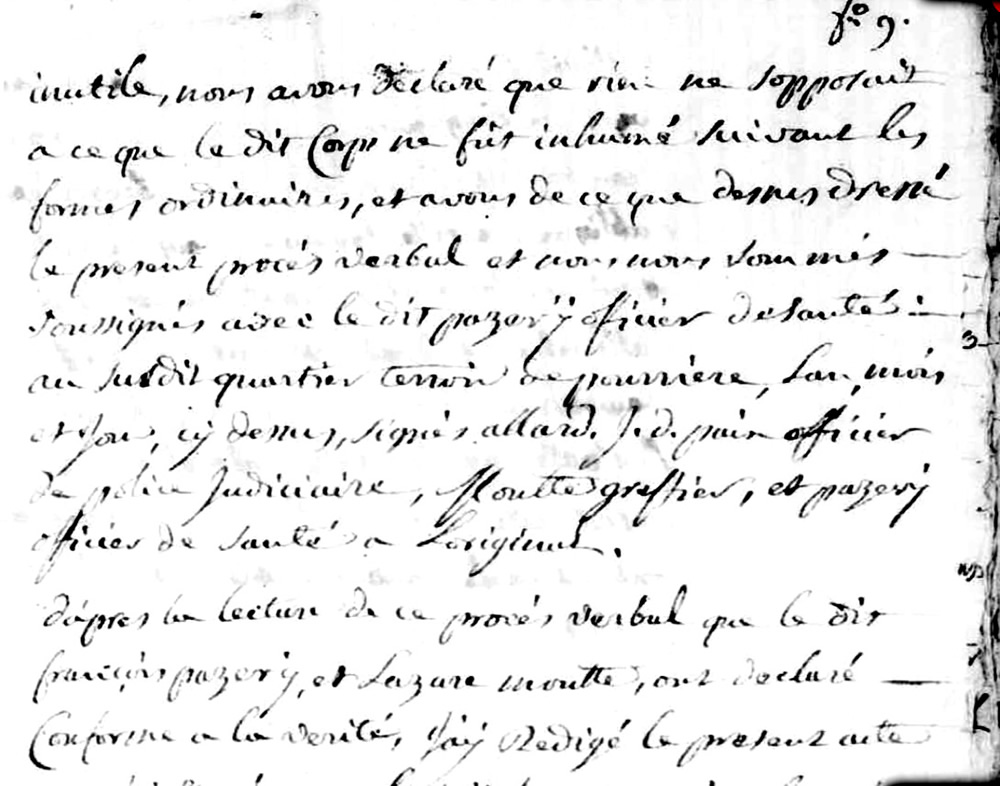 f.o 9.
inutile, nous avons declaré que rien ne sopposait
a ce que le dit Corps ne fût inhumé suivant les
formes ordinaires, et avons de ce que dessus dressé
le present procés verbal et nous nous sommés
soussignés avec le dit pazery officier de santé
au susdit quartier terroir de pourriere, Lan, mois
et Jour, cy dessus, signés allard. J. d. paix officier
de police Judiciaire, Moutte greffier, et pazery
officier de santé a Loriginal.
dápres la lecture de ce procés verbal que le dit
françois pazery, et Lazare moutte, ont declaré
Conforme a la verité, Jáy Redigé le present acte